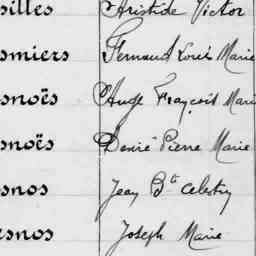 silles Aristide Victor
smiers Fernand Louis Marie
snoës Ange François Marie
snoës Désiré Pierre Marie
snos Jean Bte Célestin
esnos Joseph Marie